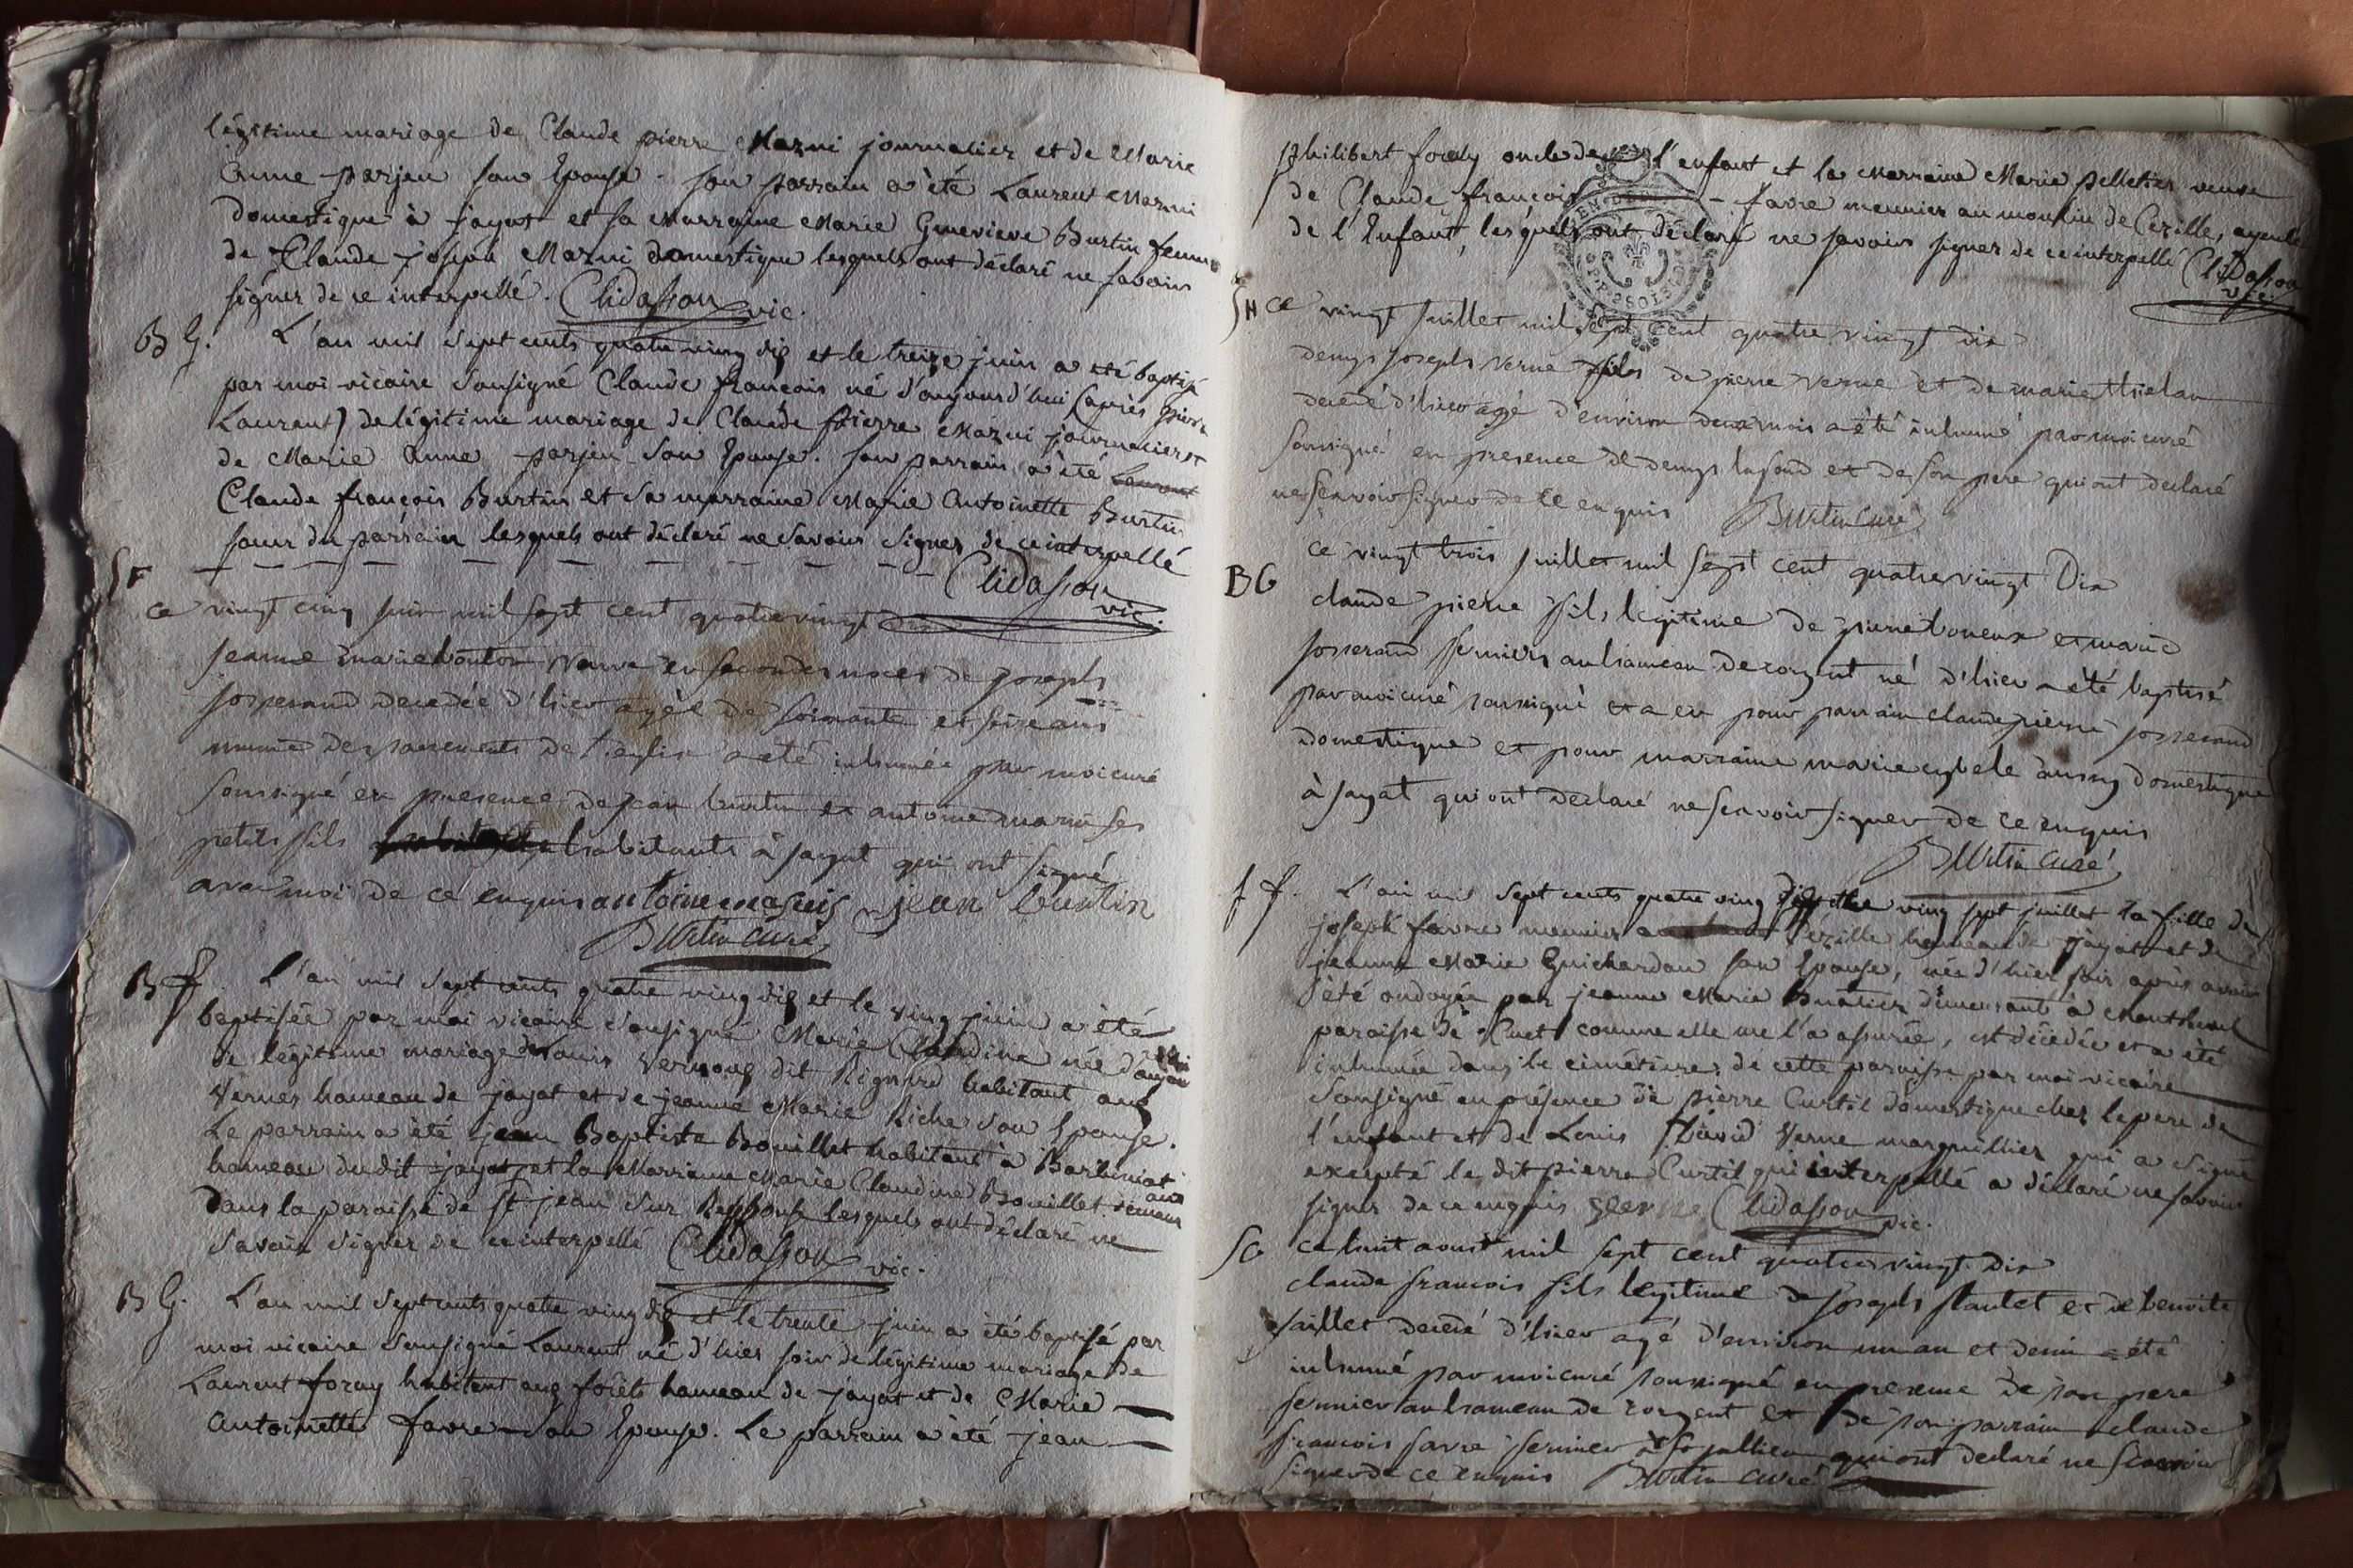 légitime mariage de Claude pierre Mazui journalier et de Marie
Anne parjeu son Epouse. son parrain a été Laurent Mazui
domestique à jayat et sa Marraine Marie Genevieve Burtin femme
de Claude joseph Mazui domestique lesquels ont déclaré ne savoir
signer de ce interpellé. Clidasson vic.
B G. L'an mil sept cents quatre ving dix et le treize juin a été baptisé
par moi vicaire sousigné Claude françois né d'aujourd'hui (après pierre
Laurent) de légitime mariage de Claude pierre Mazui journalier et
de Marie Anne parjeu son Epouse. son parrain a été Laurent
Claude françois Burtin et sa marraine Marie Antoinette Burtin
soeur du parrain lesquels ont déclaré ne savoir signer de ce interpellé
Clidasson vic.
SF ce vingt cinq juin mil sept cent quatre vingt dix
jeanne marie bouton veuve en secondes noces de joseph
josserand decedée d'hier agée de soixante et seize ans
munie des sacrements de l'eglise a été inhumée par moi curé
soussigné en presence de jean burtin et antoine marui ses
petits fils habitants à jayat qui ont signé
avec moi de ce enquis antoine masuis jean burtin
Burtin curé
B f. L'an mil sept cents quatre ving dix et le ving juin a été
baptisée par moi vicaire sousigné Marie Claudine née d'aujourd'hui
de légitime mariage de Louis Vernoux dit Rignard habitant aux
Vernes hameau de jayat et de jeanne Marie Riche son Epouse.
Le parrain a été jean Baptiste Bouillet habitant à
hameau dudit jayat, et la Marraine Marie Claudine Bouillet demeurant
dans la paroisse de St jean sur Reyssouse lesquels ont déclaré ne
savoir signer de ce interpellé Clidasson vic.
B G. L'an mil sept cents quatre ving dix et le trente juin a été baptisé par
moi vicaire sousigné Laurent né d'hier soir de légitime mariage de
Laurent foray habitant aux forêts hameau de jayat et de Marie
Antoinette favre son Epouse. Le parrain a été jean
philibert foray oncle de l'enfant et la Marraine Marie pelletier veuve
de Claude françois favre meunier au moulin de Cezille, ayeule
de l'Enfant, lesquels ont déclaré ne savoir signer de ce interpellé Clidasson
vic.
SH ce vingt juillet mil sept cent quatre vingt dix
denys joseph verne fils de pierre verne et de marie thielan
decedé d'hier agé d'environ deux mois a été inhumé par moi curé
soussigné en presence de denys lafond et de son pere qui ont declaré
ne sçavoir signer de ce enquis Burtin curé
BG ce vingt trois juillet mil sept cent quatre vingt Dix
claude pierre fils légitime de pierre boneux et marie
josserand fermiers au hameau de corgent né d'hier a été baptisé
par moi curé soussigné et a eu pour parrain claude pierre josserand
domestique et pour marraine marie cybele aussy domestique
à jayat qui ont declaré ne sçavoir signer de ce enquis
Burtin curé
f f. L'an mil sept cents quatre ving dix et le ving sept juillet la fille de
joseph favre meunier Cezille hameau de jayat et de
jeanne Marie Guichardan son Epouse, née d'hier soir après avoir
été ondoyée par jeanne Marie Buatier demeurant à Montheul
paroisse de Cuet comme elle me l'a assurée, est décédée et a été
inhumée dans le cimétiere de cette paroisse par moi vicaire
sousigné en présence de pierre Curtil domestique chez le pere de
l'enfant et de Louis David Verne marguillier qui a signé
excepté le dit pierre Curtil qui interpellé a déclaré ne savoir
signer de ce enquis Clidasson vic.
SG ce huit aoust mil sept cent quatre vingt dix
claude francois fils legitime de joseph flautet et de benoite
paillet decedé d'hier agé d'environ un an et demi a été
inhumé par moi curé soussigné en presence de son pere
fermier au hameau de corgent et de son parrain claude
francois favre fermier à St jullien qui ont declaré ne scavoir
signer de ce enquis Burtin curé